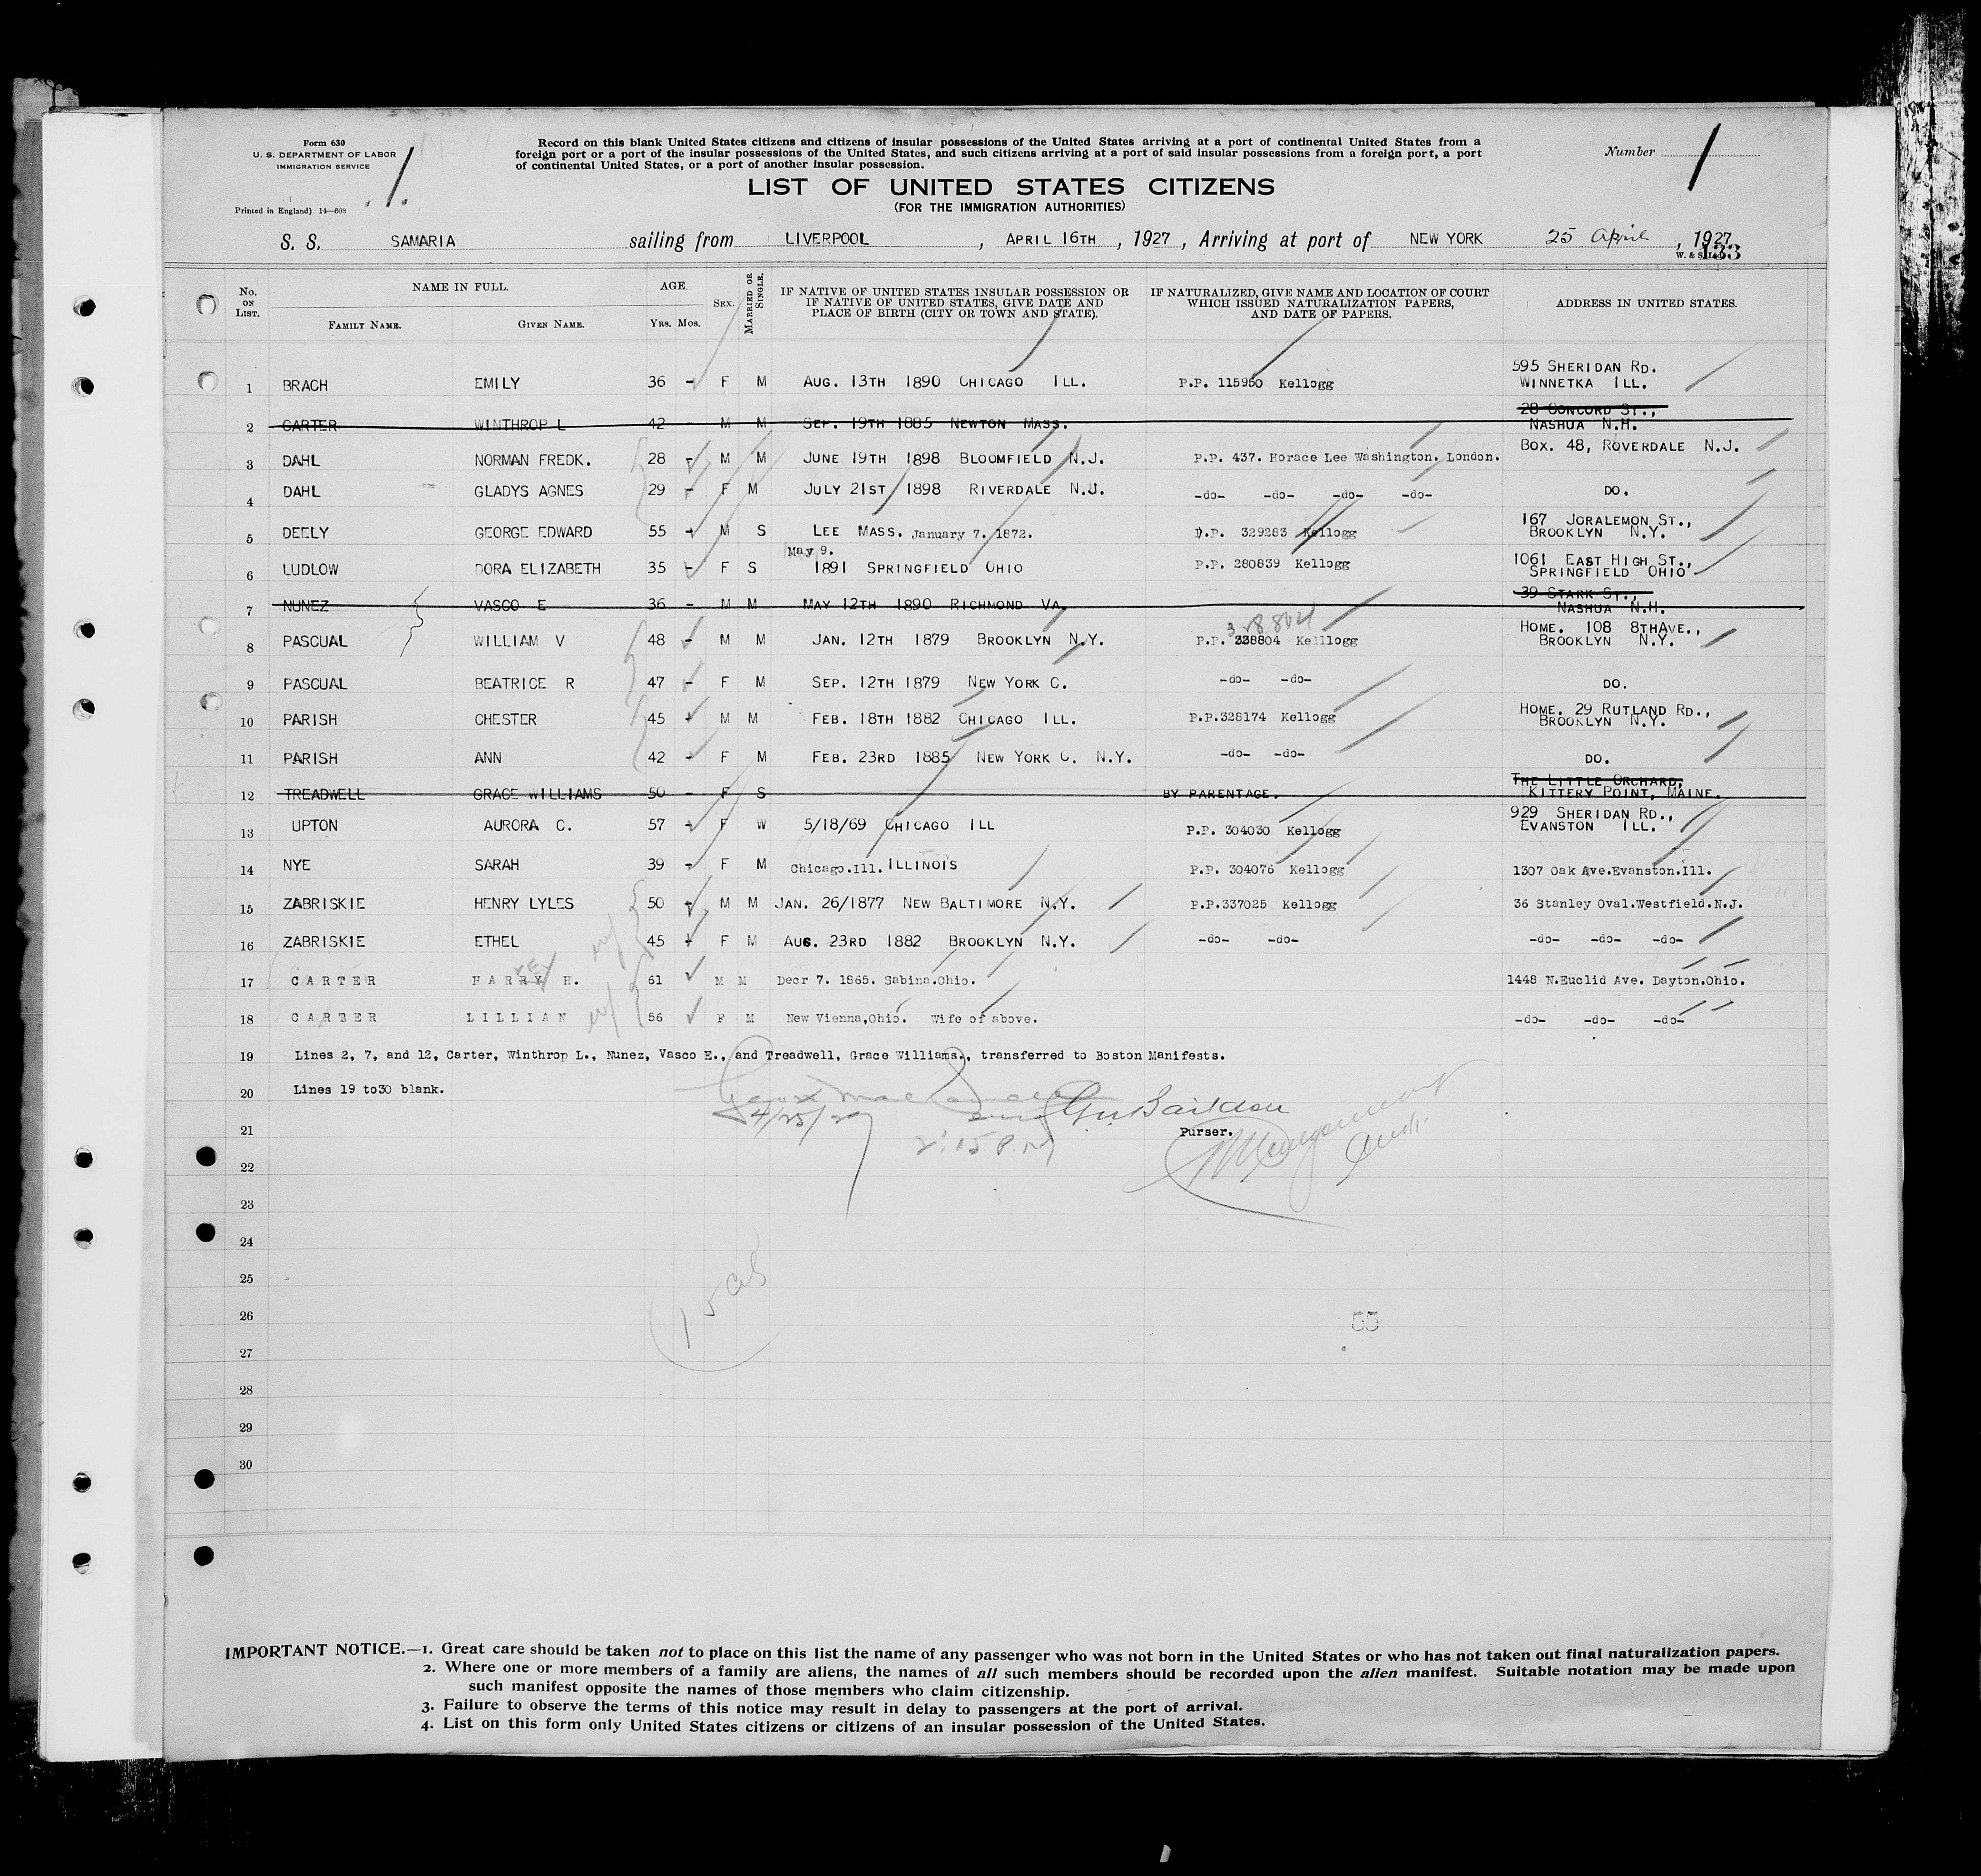 Form 630
U. S. DEPARTMENT OF LABOR
IMMIGRATION SERVICE
Printed in England) 14—608
1.
Record on this blank United States citizens and citizens of insular possessions of the United States arriving at a port of continental United States from a
foreign port or a port of the insular possessions of the United States, and such citizens arriving at a port of said insular possessions from a foreign port, a port
of continental United States, or a port of another insular possession.
Number 1
LIST OF UNITED STATES CITIZENS
(FOR THE IMMIGRATION AUTHORITIES)
S. S. SAMARIA sailing from LIVERPOOL, APRIL 16TH, 1927, Arriving at port of NEW YORK 25 April, 1927
133
No. ON LIST.
NAME IN FULL.
FAMILY NAME. GIVEN NAME.
AGE.
YRS. MOS.
SEX.
MARRIED OR SINGLE.
IF NATIVE OF UNITED STATES INSULAR POSSESSION OR
IF NATIVE OF UNITED STATES, GIVE DATE AND
PLACE OF BIRTH (CITY OR TOWN AND STATE).
IF NATURALIZED, GIVE NAME AND LOCATION OF COURT
WHICH ISSUED NATURALIZATION PAPERS,
AND DATE OF PAPERS.
ADDRESS IN UNITED STATES.
1 BRACH EMILY 36 - F M AUG. 13TH 1890 CHICAGO ILL. P.P. 115950 Kellogg 595 SHERIDAN RD.
WINNETKA ILL.
2 CARTER WINTHROP L 42 - M M SEP. 19TH 1885 NEWTON MASS. 28 CONCORD ST.,
NASHUA N.H.
3 DAHL NORMAN FREDK. 28 - M M JUNE 19TH 1898 BLOOMFIELD N.J. P.P. 437. Horace Lee Washington. London. BOX. 48, ROVERDALE N.J.
4 DAHL GLADYS AGNES 29 - F M JULY 21ST 1898 RIVERDALE N.J. -do- -do- -do- -do- DO.
5 DEELY GEORGE EDWARD 55 - M S LEE MASS. January 7. 1872. P.P. 329283 Kellogg 167 JORALEMON ST.,
BROOKLYN N.Y.
May 9.
6 LUDLOW DORA ELIZABETH 35 - F S 1891 SPRINGFIELD OHIO P.P. 280839 Kellogg 1061 EAST HIGH ST.,
SPRINGFIELD OHIO
7 NUNEZ VASCO E 36 - M M MAY 12TH 1890 RICHMOND VA. 39 STARK ST.,
NASHUA N.H.
8 PASCUAL WILLIAM V 48 - M M JAN. 12TH 1879 BROOKLYN N.Y. P.P. 328804 Kelllogg HOME. 108 8THAVE.,
BROOKLYN N.Y.
9 PASCUAL BEATRICE R 47 - F M SEP. 12TH 1879 NEW YORK C. -do- -do- DO.
10 PARISH CHESTER 45 - M M FEB. 18TH 1882 CHICAGO ILL. P.P.328174 Kellogg HOME. 29 RUTLAND RD.,
BROOKLYN N.Y.
11 PARISH ANN 42 - F M FEB. 23RD 1885 NEW YORK C. N.Y. -do- -do- DO.
12 TREADWELL GRACE WILLIAMS 50 - F S BY PARENTAGE. THE LITTLE ORCHARD,
KITTERY POINT, MAINE.
13 UPTON AURORA C. 57 - F W 5/18/69 CHICAGO ILL P.P. 304030 Kellogg 929 SHERIDAN RD.,
EVANSTON ILL.
14 NYE SARAH 39 - F M Chicago.Ill. ILLINOIS P.P. 304076 Kellogg 1307 Oak Ave.Evanston.Ill.
15 ZABRISKIE HENRY LYLES 50 - M M JAN. 26/1877 NEW BALTIMORE N.Y. P.P.337025 Kellogg 36 Stanley Oval.Westfield.N.J.
16 ZABRISKIE ETHEL 45 - F M AUG. 23RD 1882 BROOKLYN N.Y. -do- -do- -do- -do- -do-
17 CARTER HARRY H. 61 M M Decr 7. 1865. Sabina.Ohio. 1448 N.Euclid Ave. Dayton.Ohio.
18 CARTER LILLIAN 56 F M New Vienna,Ohio. Wife of above. -do- -do- -do-
19 Lines 2, 7, and 12, Carter, Winthrop L., Nunez, Vasco E., and Treadwell, Grace Williams., transferred to Boston Manifests.
20 Lines 19 to30 blank.
4/25/27
21 Purser.
2:15 P.M
22
23
24
25
26 55
27
28
29
30
IMPORTANT NOTICE.—1. Great care should be taken not to place on this list the name of any passenger who was not born in the United States or who has not taken out final naturalization papers.
2. Where one or more members of a family are aliens, the names of all such members should be recorded upon the alien manifest. Suitable notation may be made upon
such manifest opposite the names of those members who claim citizenship.
3. Failure to observe the terms of this notice may result in delay to passengers at the port of arrival.
4. List on this form only United States citizens or citizens of an insular possession of the United States.